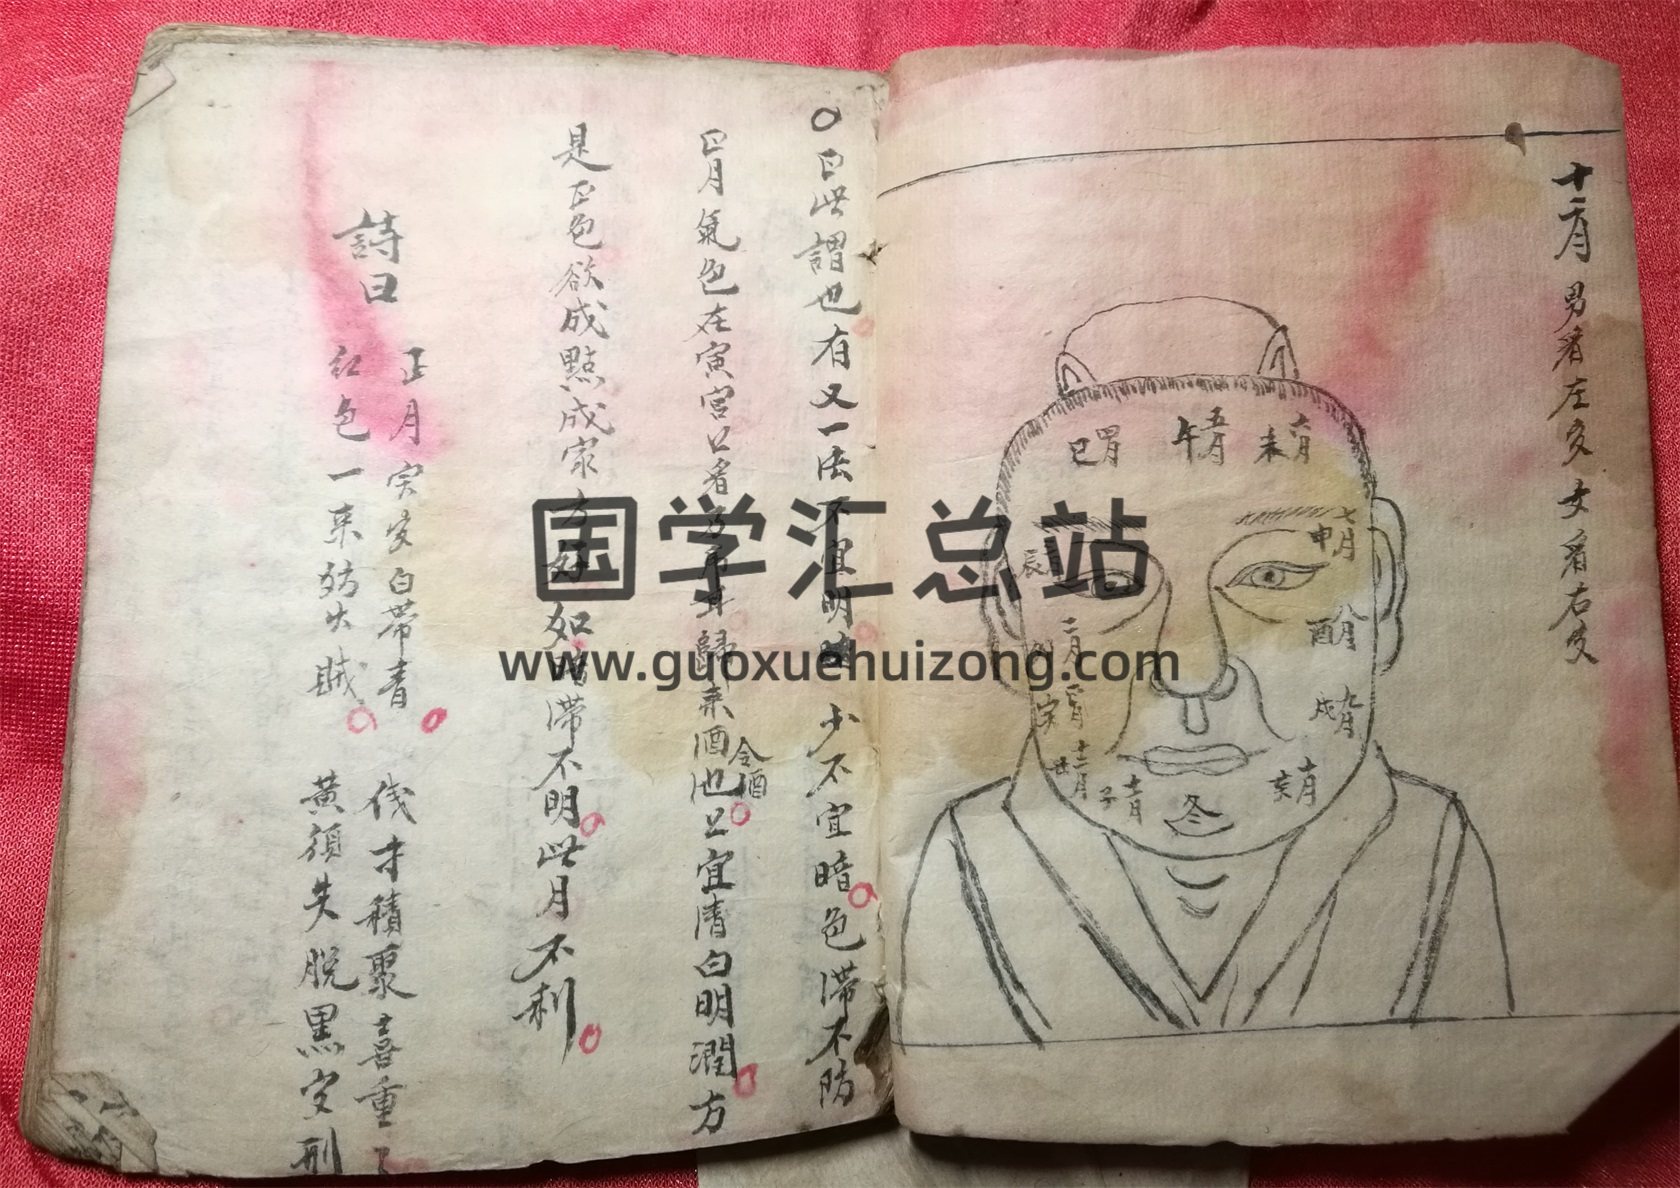 十二月 男看左 女看右
巳 四月
午 五月
未 六月
申 七月
酉 八月
戌 九月
亥 十月
冬
子 十一月
丑 十二月
寅 正月
二月
辰 三月
曰此謂也有又一法不宜明 少不宜暗色滯不防
正月氣色在寅宮 看 歸來酒池 宜清白明潤方
令酒
是正色欲成點成家方好如暗滯不明此月不利
詩曰
正月寅 白帶青 積聚喜重
紅色一來防失賊 黃須失脫黑 刑
国学汇总站
www.guoxuehuizong.com